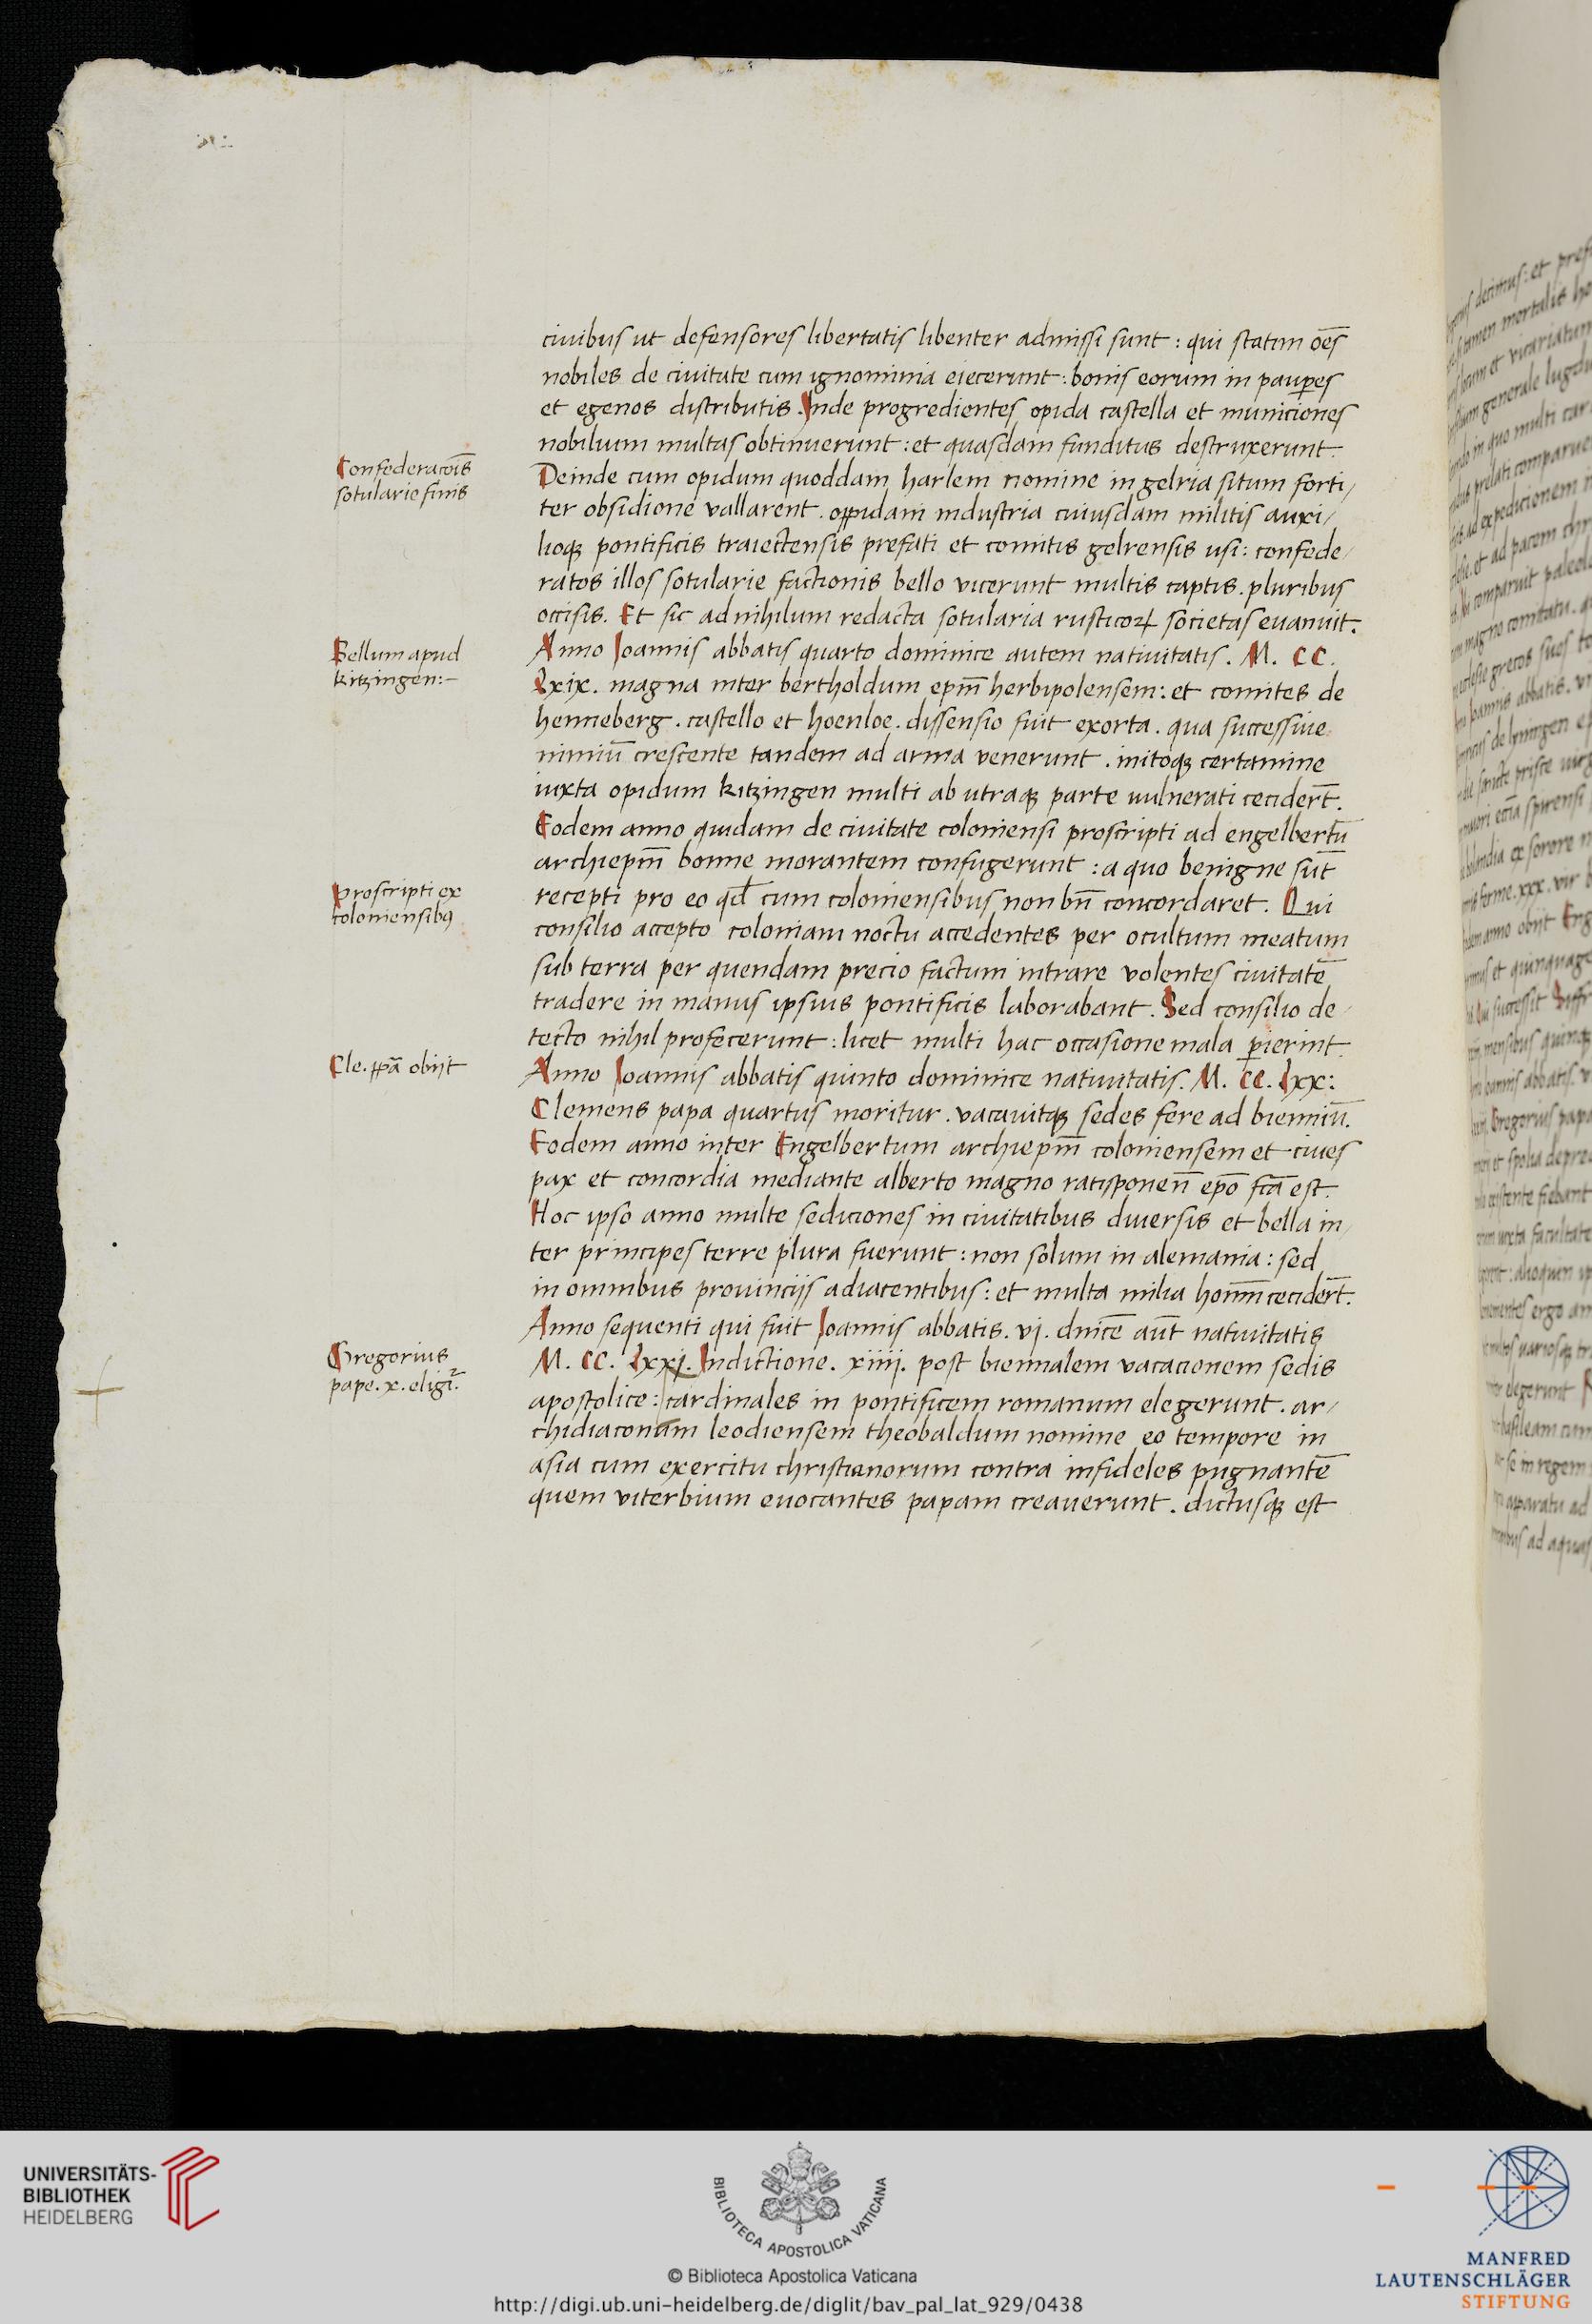 ciuibus ut defensores libertatis libenter admissi sunt : qui statim oēs
nobiles de ciuitate cum ignominia eiecerunt : bonis eorum in paup̱es
et egenos distributis. Inde progredientes opida castella et municiones
nobilium multas obtinuerunt : et quasdam funditus destruxerunt.
Confederacōis
sotularie finis
Deinde cum opidum quoddam harlem nomine in gelria situm forti/
ter obsidione vallarent . opidani industria cuiusdam militis auxi/
lioqꝫ pontificis traiectensis prefati et comitis gelrensis usi : confede/
ratos illos sotularie factionis bello vicerunt multis captis . pluribus
occisis. Et sic ad nihilum redacta sotularia rusticoꝝ societas euanuit.
Bellum apud
kitzingen:-
Anno Joannis abbatis quarto dominice autem natiuitatis . M. CC.
Lxix. magna inter bertholdum ep̄m herbipolensem : et comites de
henneberg . castello et hoenloe . dissensio fuit exorta . qua successiue
nimiū crescente tandem ad arma venerunt . initoqꝫ certamine
iuxta opidum kitzingen multi ab utraqꝫ parte uulnerati cecider̄t.
Eodem anno quidam de ciuitate coloniensi proscripti ad engelbertū
archiep̄m bonne morantem confugerunt : a quo benigne sūt
Proscripti ex
coloniensibꝯ
recepti pro eo qđ cum coloniensibus non bn̄ concordaret. Qui
consilio accepto coloniam noctu accedentes per ocultum meatum
sub terra per quendam precio factum intrare volentes ciuitatē
tradere in manus ipsius pontificis laborabant. Sed consilio de/
tecto nihil profecerunt : licet multi hac occasione mala p̱ierint.
Cle. ppā obijt
Anno Joannis abbatis quinto dominice natiuitatis. M. CC. Lxx:
Clemens papa quartus moritur . vacauitqꝫ sedes fere ad bienniū.
Eodem anno inter Engelbertum archiep̄m coloniensem et ciues
pax et concordia mediante alberto magno ratisponen̄ ep̄o fcā est.
Hoc ipso anno multe sediciones in ciuitatibus diuersis et bella in/
ter principes terre plura fuerunt : non solum in alemania : sed
in omnibus prouincijs adiacentibus : et multa milia homīm cecider̄t.
Anno sequenti qui fuit Joannis abbatis . vj. dn̄ice aūt natiuitatis
Gregorius
pape . x. eligit̄.
M. CC. Lxxj. Indictione. xiiij. post biennalem vacacionem sedis
apostolice : cardinales in pontificem romanum elegerunt . ar/
chidiaconum leodiensem theobaldum nomine eo tempore in
asia cum exercitu christianorum contra infideles pugnantē
quem viterbium euocantes papam creauerunt . dictusqꝫ est
UNIVERSITÄTS-
BIBLIOTHEK
HEIDELBERG
BIBLIOTECA APOSTOLICA VATICANA
© Biblioteca Apostolica Vaticana
http://digi.ub.uni-heidelberg.de/diglit/bav_pal_lat_929/0438
MANFRED
LAUTENSCHLÄGER
STIFTUNG